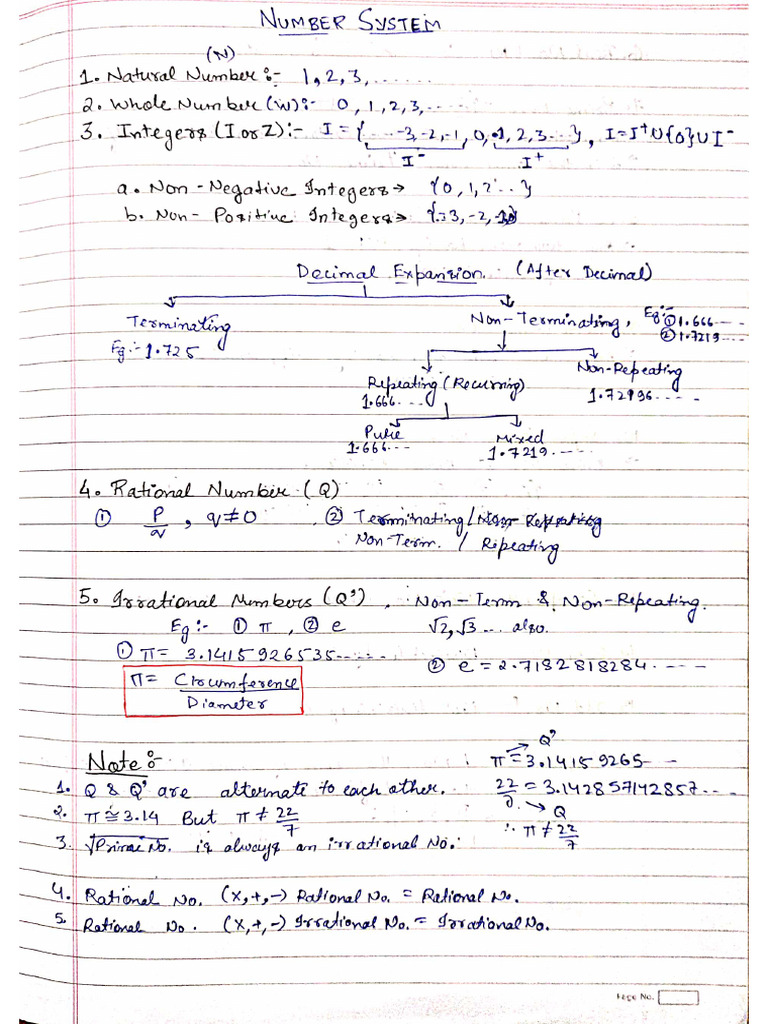 NUMBER SYSTEM
(N)
1. Natural Number :- 1, 2, 3, ......
2. Whole Number (W) :- 0, 1, 2, 3, ......
3. Integers (I or Z) :- I = { ... -3, -2, -1, 0, 1, 2, 3... }, I = I⁺ U {0} U I⁻
I⁻ I⁺
a. Non-Negative Integers → {0, 1, 2...}
b. Non-Positive Integers → {...-3, -2, -1, 0}
Decimal Expansion. (After Decimal)
Terminating
Eg:- 1.725
Non-Terminating, Eg:- ① 1.666.....
② 1.7219.....
Repeating (Recurring)
1.666....
Non-Repeating
1.72996.....
Pure
1.666...
Mixed
1.7219.....
4. Rational Number (Q)
① P/q, q ≠ 0 ② Terminating / Non-Repeating
Non-Term. / Repeating
5. Irrational Numbers (Q'), Non-Term & Non-Repeating.
Eg:- ① π, ② e √2, √3 ... also.
① π = 3.1415926535......
② e = 2.7182818284.....
π = Circumference / Diameter
Note :-
1. Q & Q' are alternate to each other.
2. π ≅ 3.14 But π ≠ 22/7
3. √Prime No. is always an irrational No.
Q'
π = 3.14159265...
22/7 = 3.142857142857...
Q
∴ π ≠ 22/7
4. Rational No. (x, +, -) Rational No. = Rational No.
5. Rational No. (x, +, -) Irrational No. = Irrational No.
Page No.